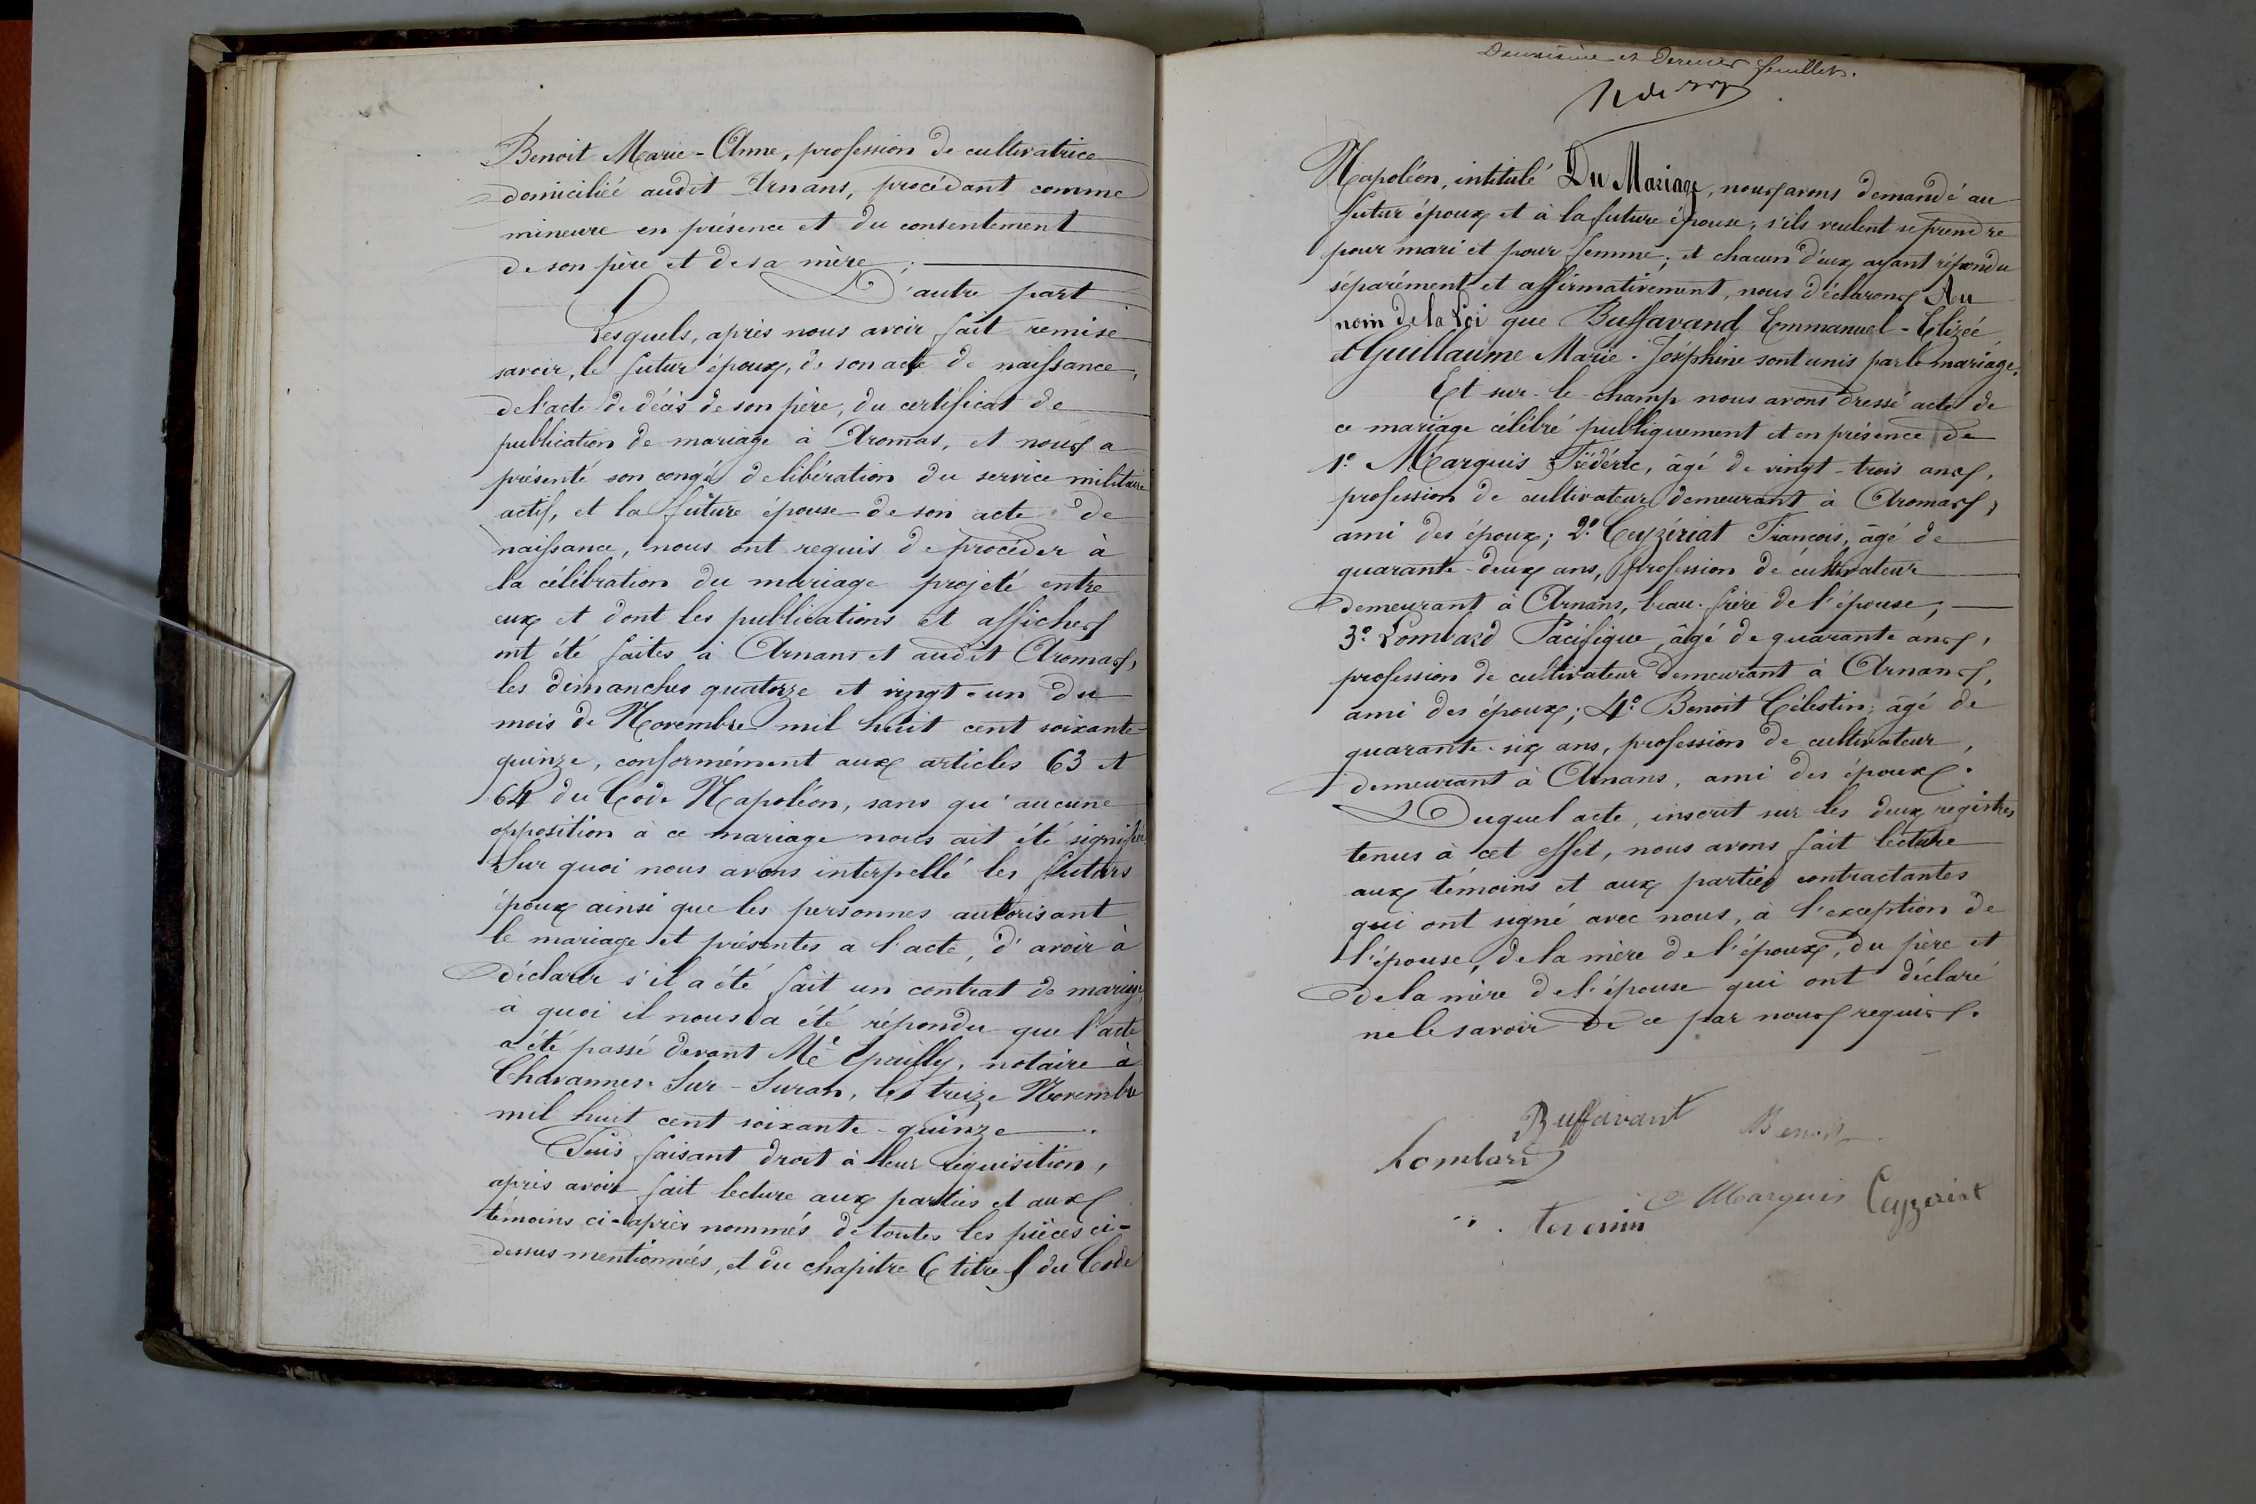 Benoit Marie-Anne, profession de cultivatrice
domiciliée audit Arnans, procédant comme
mineure en présence et du consentement
de son père et de sa mère ;
D'autre part
Lesquels, après nous avoir fait remise
savoir, le futur époux, de son acte de naissance,
de l'acte de décès de son père, du certificat de
publication de mariage à Aromas, et nous a
présenté son congé de libération du service militaire
actif, et la future épouse de son acte de
naissance, nous ont requis de procéder à
la célébration du mariage projeté entre
eux et dont les publications et affiches
ont été faites à Arnans et audit Aromas,
les dimanches quatorze et vingt-un du
mois de Novembre mil huit cent soixante-
quinze, conformément aux articles 63 et
64 du Code Napoléon, sans qu'aucune
opposition à ce mariage nous ait été signifiée
Sur quoi nous avons interpellé les futurs
époux ainsi que les personnes autorisant
le mariage et présentes a l'acte, d'avoir à
déclarer s'il a été fait un contrat de mariage,
à quoi il nous a été répondu que l'acte
a été passé devant Me notaire à
Chavannes-Sur-Suran, le treize Novembre
mil huit cent soixante-quinze.
Puis faisant droit à leur réquisition,
après avoir fait lecture aux parties et aux
témoins ci-après nommés de toutes les pièces ci-
dessus mentionnées, et du chapitre 6 titre 5 du Code
Deuxième et Dernier feuillet.
Napoléon, intitulé Du Mariage, nous avons demandé au
futur époux et à la future épouse, s'ils veulent se prendre
pour mari et pour femme; et chacun d'eux ayant répondu
séparément et affirmativement, nous déclarons Au
nom de la Loi que Buffavand Emmanuel-Elizée
et Guillaume Marie-Joséphine sont unis par le mariage.
Et sur-le-champ nous avons dressé acte de
ce mariage célébré publiquement et en présence de
1º Marquis Frédéric, âgé de vingt-trois ans,
profession de cultivateur demeurant à Aromas,
ami des époux; 2º Ceyzériat François, âgé de
quarante-deux ans, profession de cultivateur
demeurant à Arnans, beau-frère de l'épouse;
3º Lombard Pacifique, âgé de quarante ans,
profession de cultivateur demeurant à Arnans,
ami des époux; 4º Benoit Célestin, âgé de
quarante-six ans, profession de cultivateur,
demeurant à Arnans, ami des époux.
Duquel acte, inscrit sur les deux registres
tenus à cet effet, nous avons fait lecture
aux témoins et aux parties contractantes
qui ont signé avec nous, à l'exception de
l'épouse, de la mère de l'époux, du père et
de la mère de l'épouse qui ont déclaré
ne le savoir de ce par nous requis.
Buffavant Benoit
Lombard
Marquis Ceyzeriat